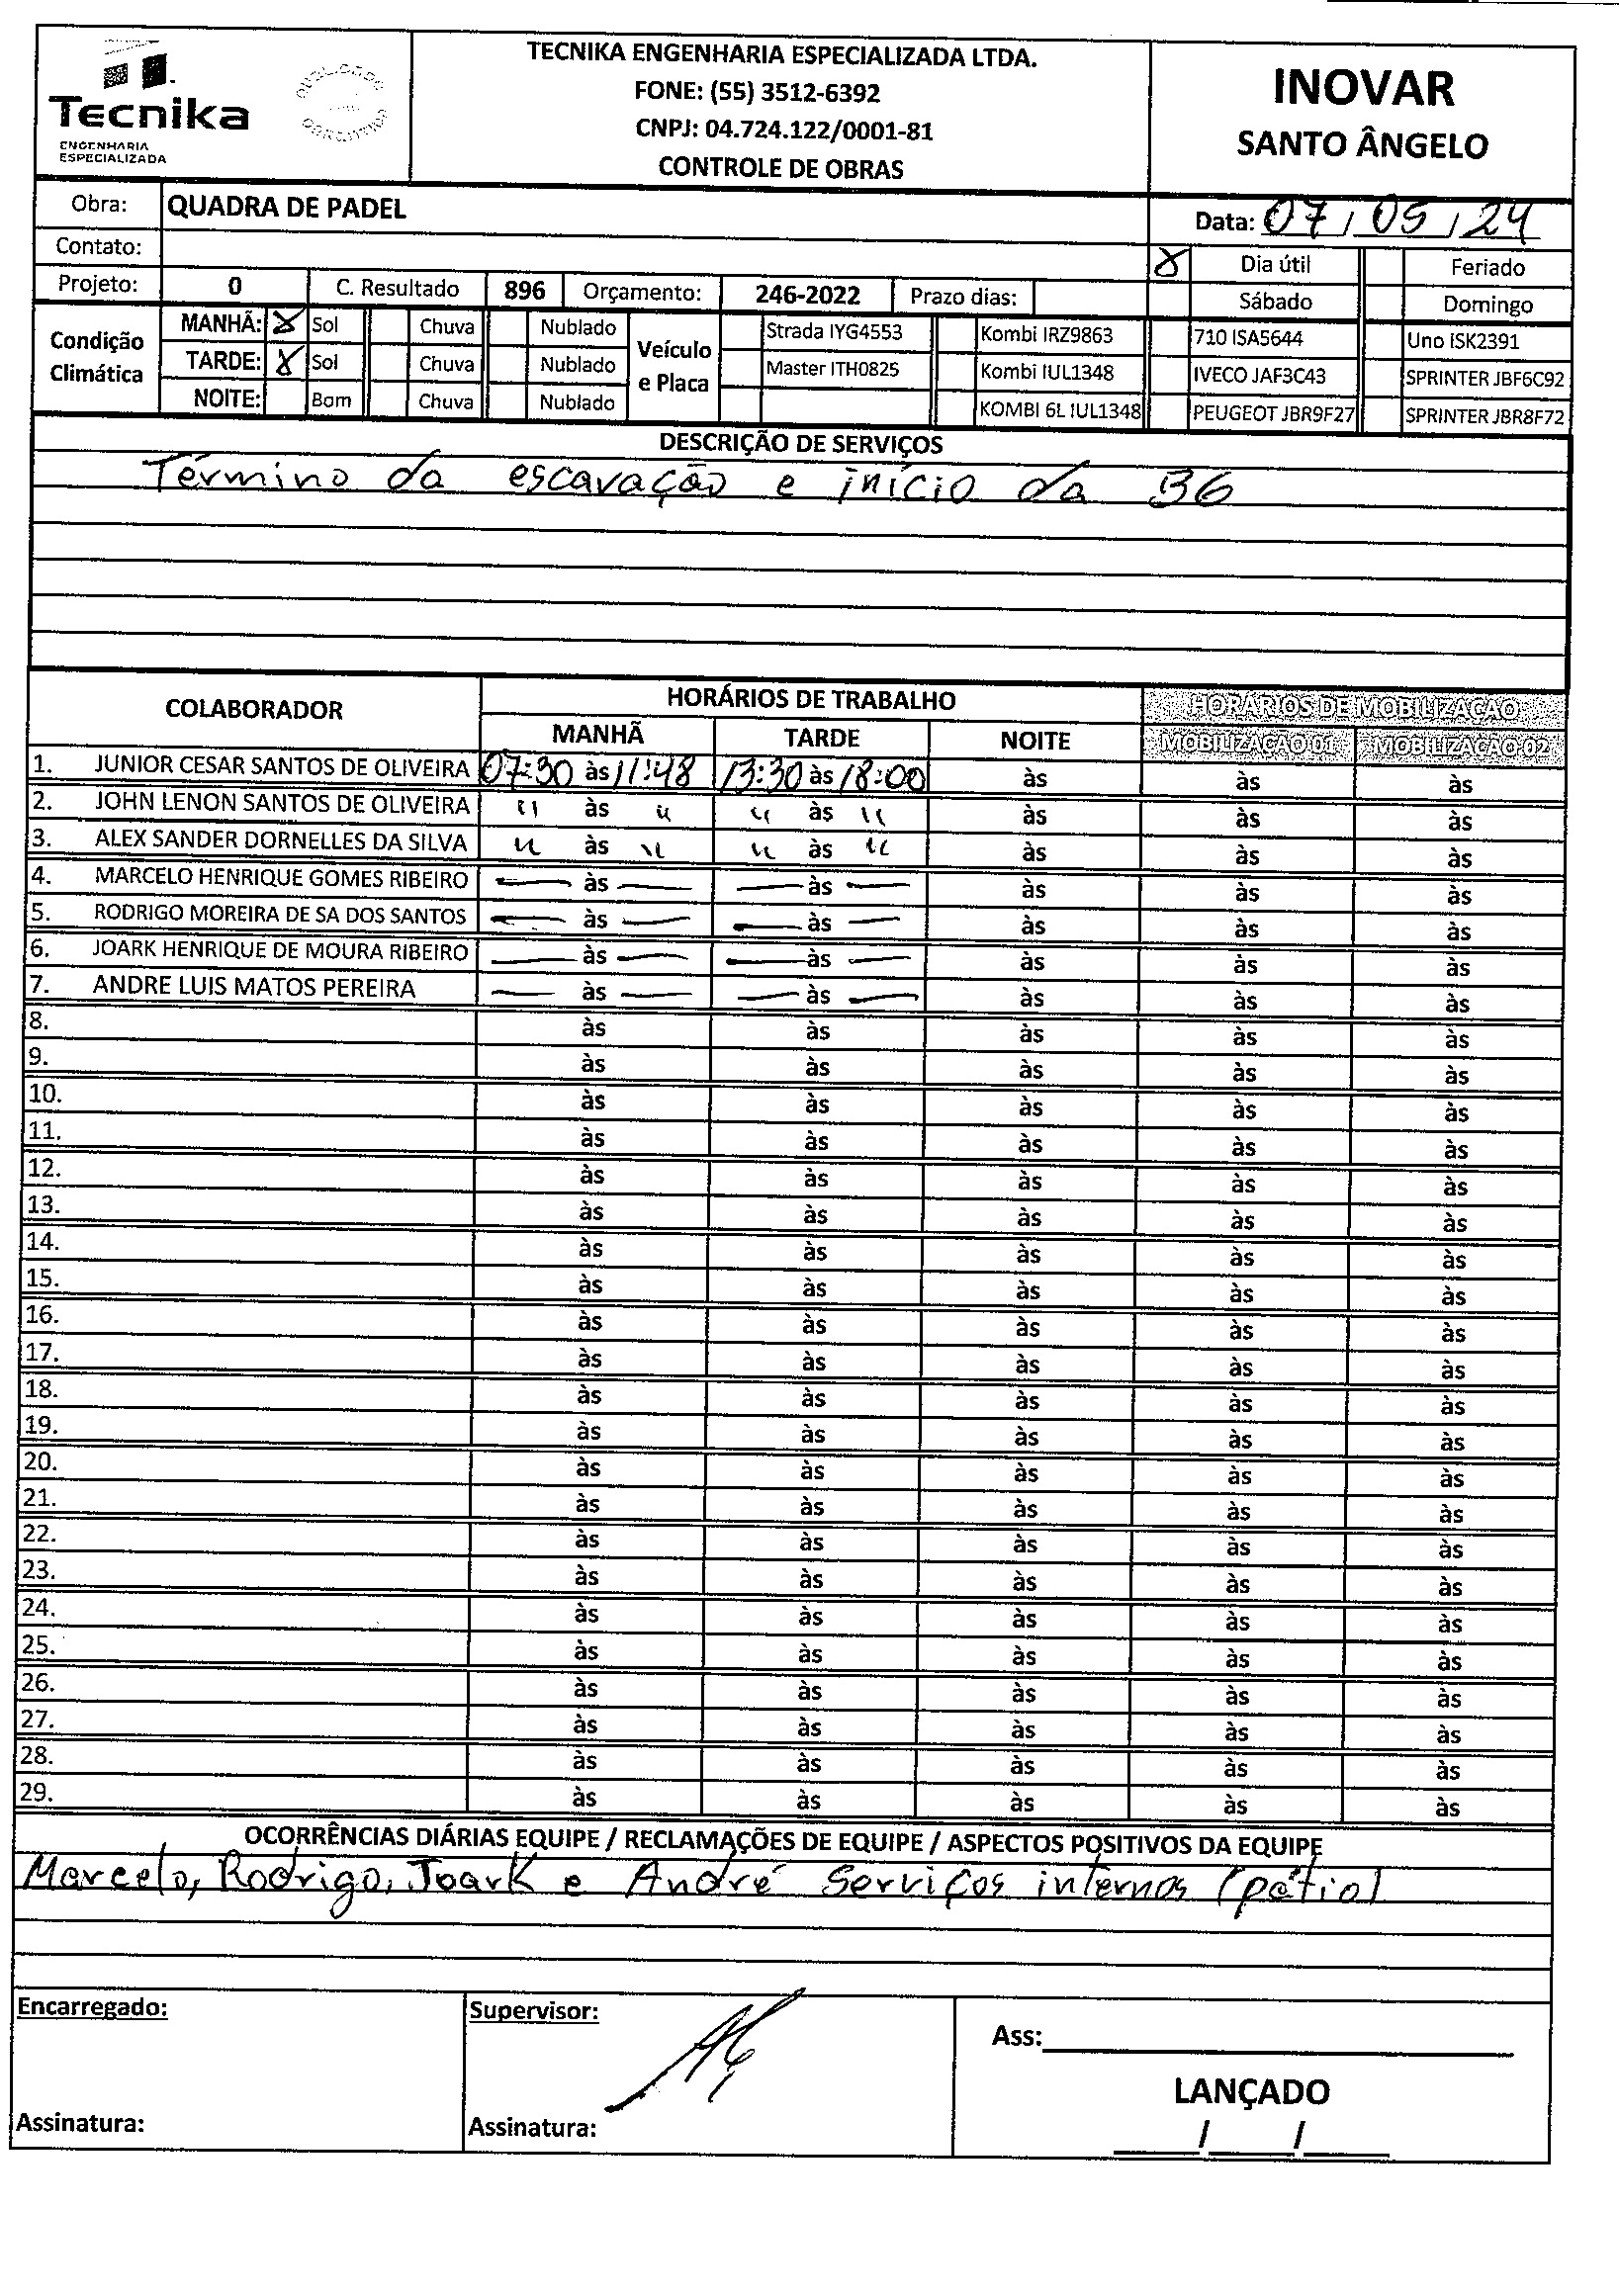 Tecnika
ENGENHARIA
ESPECIALIZADA
TECNIKA ENGENHARIA ESPECIALIZADA LTDA.
FONE: (55) 3512-6392
CNPJ: 04.724.122/0001-81
CONTROLE DE OBRAS
INOVAR
SANTO ÂNGELO
Obra: QUADRA DE PADEL
Data: 07/05/24
Contato:
X Dia útil Feriado
Projeto: 0 C. Resultado 896 Orçamento: 246-2022 Prazo dias: Sábado Domingo
Condição Climática
MANHÃ: X Sol Chuva Nublado
TARDE: X Sol Chuva Nublado
NOITE: Bom Chuva Nublado
Veículo e Placa
Strada IYG4553 Kombi IRZ9863 710 ISA5644 Uno ISK2391
Master ITH0825 Kombi IUL1348 IVECO JAF3C43 SPRINTER JBF6C92
KOMBI 6L IUL1348 PEUGEOT JBR9F27 SPRINTER JBR8F72
DESCRIÇÃO DE SERVIÇOS
Término da escavação e início da BG
COLABORADOR HORÁRIOS DE TRABALHO HORÁRIOS DE MOBILIZAÇÃO
MANHÃ TARDE NOITE MOBILIZAÇÃO 01 MOBILIZAÇÃO 02
1. JUNIOR CESAR SANTOS DE OLIVEIRA 07:30 às 11:48 13:30 às 18:00 às às às
2. JOHN LENON SANTOS DE OLIVEIRA " às " " às " às às às
3. ALEX SANDER DORNELLES DA SILVA " às " " às " às às às
4. MARCELO HENRIQUE GOMES RIBEIRO — às — — às — às às às
5. RODRIGO MOREIRA DE SA DOS SANTOS — às — — às — às às às
6. JOARK HENRIQUE DE MOURA RIBEIRO — às — — às — às às às
7. ANDRE LUIS MATOS PEREIRA — às — — às — às às às
8. às às às às às
9. às às às às às
10. às às às às às
11. às às às às às
12. às às às às às
13. às às às às às
14. às às às às às
15. às às às às às
16. às às às às às
17. às às às às às
18. às às às às às
19. às às às às às
20. às às às às às
21. às às às às às
22. às às às às às
23. às às às às às
24. às às às às às
25. às às às às às
26. às às às às às
27. às às às às às
28. às às às às às
29. às às às às às
OCORRÊNCIAS DIÁRIAS EQUIPE / RECLAMAÇÕES DE EQUIPE / ASPECTOS POSITIVOS DA EQUIPE
Marcelo, Rodrigo, Joark e André serviços internos (pátio)
Encarregado: Supervisor:
Ass:
LANÇADO
Assinatura: Assinatura: / /